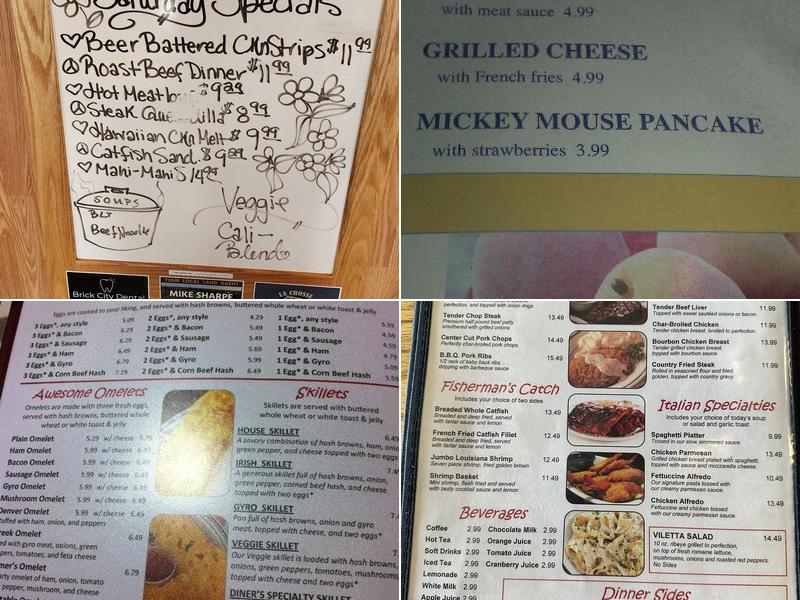 Saturday Specials
Beer Battered Ckn Strips $11.99
Roast Beef Dinner $11.99
Hot Meat $9.99
Steak $8.99
Hawaiian Ckn Melt $9.99
Catfish Sand. $9.99
Mahi-Mahi $14.99
SOUPS
BLT
Beef Noodle
Veggie
Cali-
Blend
Brick City Dental
YOUR LOCAL LAND AGENT
MIKE SHARPE
LA CROSSE
with meat sauce 4.99
GRILLED CHEESE
with French fries 4.99
MICKEY MOUSE PANCAKE
with strawberries 3.99
Eggs are cooked to your liking, and served with hash browns, buttered whole wheat or white toast & jelly
3 Eggs*, any style 5.09
3 Eggs* & Bacon 6.29
3 Eggs* & Sausage 6.29
3 Eggs* & Ham 6.49
3 Eggs* & Gyro 6.79
3 Eggs* & Corn Beef Hash 7.29
2 Eggs*, any style 4.29
2 Eggs* & Bacon 5.49
2 Eggs* & Sausage 5.49
2 Eggs* & Ham 5.69
2 Eggs* & Gyro 5.99
2 Eggs* & Corn Beef Hash 6.49
1 Egg*, any style 3.39
1 Egg* & Bacon 4.59
1 Egg* & Sausage 4.59
1 Egg* & Ham 4.79
1 Egg* & Gyro 5.09
1 Egg* & Corn Beef Hash 5.59
Awesome Omelets
Omelets are made with three fresh eggs,
served with hash browns, buttered
whole wheat or white toast & jelly
Plain Omelet 5.29 w/ cheese 5.79
Ham Omelet 5.99 w/ cheese 6.49
Bacon Omelet 5.99 w/ cheese 6.49
Sausage Omelet 5.99 w/ cheese 6.49
Gyro Omelet 5.99 w/ cheese 6.49
Mushroom Omelet 5.99 w/ cheese 6.49
Denver Omelet 6.49
stuffed with ham, onion, and peppers
reek Omelet 6.49
ed with gyro meat, onions, green
ppers, tomatoes, and feta cheese
mer's Omelet 6.79
arty omelet of ham, onion, tomato
n pepper, mushroom, and cheese
Skillets
Skillets are served with buttered
whole wheat or white toast & jelly
HOUSE SKILLET 6.49
A savory combination of hash browns, ham, onion,
green pepper, and cheese topped with two eggs*
IRISH SKILLET
A generous skillet full of hash browns, onion,
green pepper, corned beef hash, and cheese
topped with two eggs*
GYRO SKILLET
Pan full of hash browns, onion and gyro
meat, topped with cheese, and two eggs*
VEGGIE SKILLET
Our Veggie skillet is loaded with hash browns,
onions, green peppers, tomatoes, mushrooms,
topped with cheese and two eggs*
DINER'S SPECIALTY SKILLET
perfection, and topped with onion rings
Tender Chop Steak 13.49
Premium half pound beef patty
smothered with grilled onions
Center Cut Pork Chops 14.49
Perfectly char-broiled pork chops
B.B.Q. Pork Ribs 15.49
1/2 rack of baby back ribs
dripping with barbecue sauce
Fisherman's Catch
Includes your choice of two sides
Breaded Whole Catfish 13.49
Breaded and deep fried, served
with tartar sauce and lemon
French Fried Catfish Fillet 12.49
Breaded and deep fried, served
with tartar sauce and lemon
Jumbo Louisiana Shrimp 12.49
Seven piece shrimp, fried golden brown
Shrimp Basket 11.49
Mini shrimp, flash fried and served
with zesty cocktail sauce and lemon
Beverages
Coffee 2.99
Hot Tea 2.99
Soft Drinks 2.99
Iced Tea 2.99
Lemonade 2.99
White Milk 2.99
Apple Juice 2.99
Chocolate Milk 2.99
Orange Juice 2.99
Tomato Juice 2.99
Cranberry Juice 2.99
Tender Beef Liver 11.99
Topped with sweet sautéed onions or bacon.
Char-Broiled Chicken 11.99
Tender chicken breast, broiled to perfection.
Bourbon Chicken Breast 13.99
Tender grilled chicken breast,
topped with bourbon sauce.
Country Fried Steak 11.99
Rolled in seasoned flour and fried
golden, topped with country gravy
Italian Specialties
Includes your choice of today's soup
or salad and garlic toast
Spaghetti Platter 9.99
Tossed in our slow simmered sauce
Chicken Parmesan 13.49
Grilled chicken breast plated with spaghetti,
topped with sauce and mozzarella cheese.
Fettuccine Alfredo 10.49
Our signature pasta tossed with
our creamy parmesan sauce.
Chicken Alfredo 13.49
Fettuccine and chicken tossed
with our creamy parmesan sauce.
VILETTA SALAD 14.49
10 oz. ribeye grilled to perfection,
on top of fresh romaine lettuce,
mushrooms, onions and roasted red peppers.
No Sides
Dinner Sides